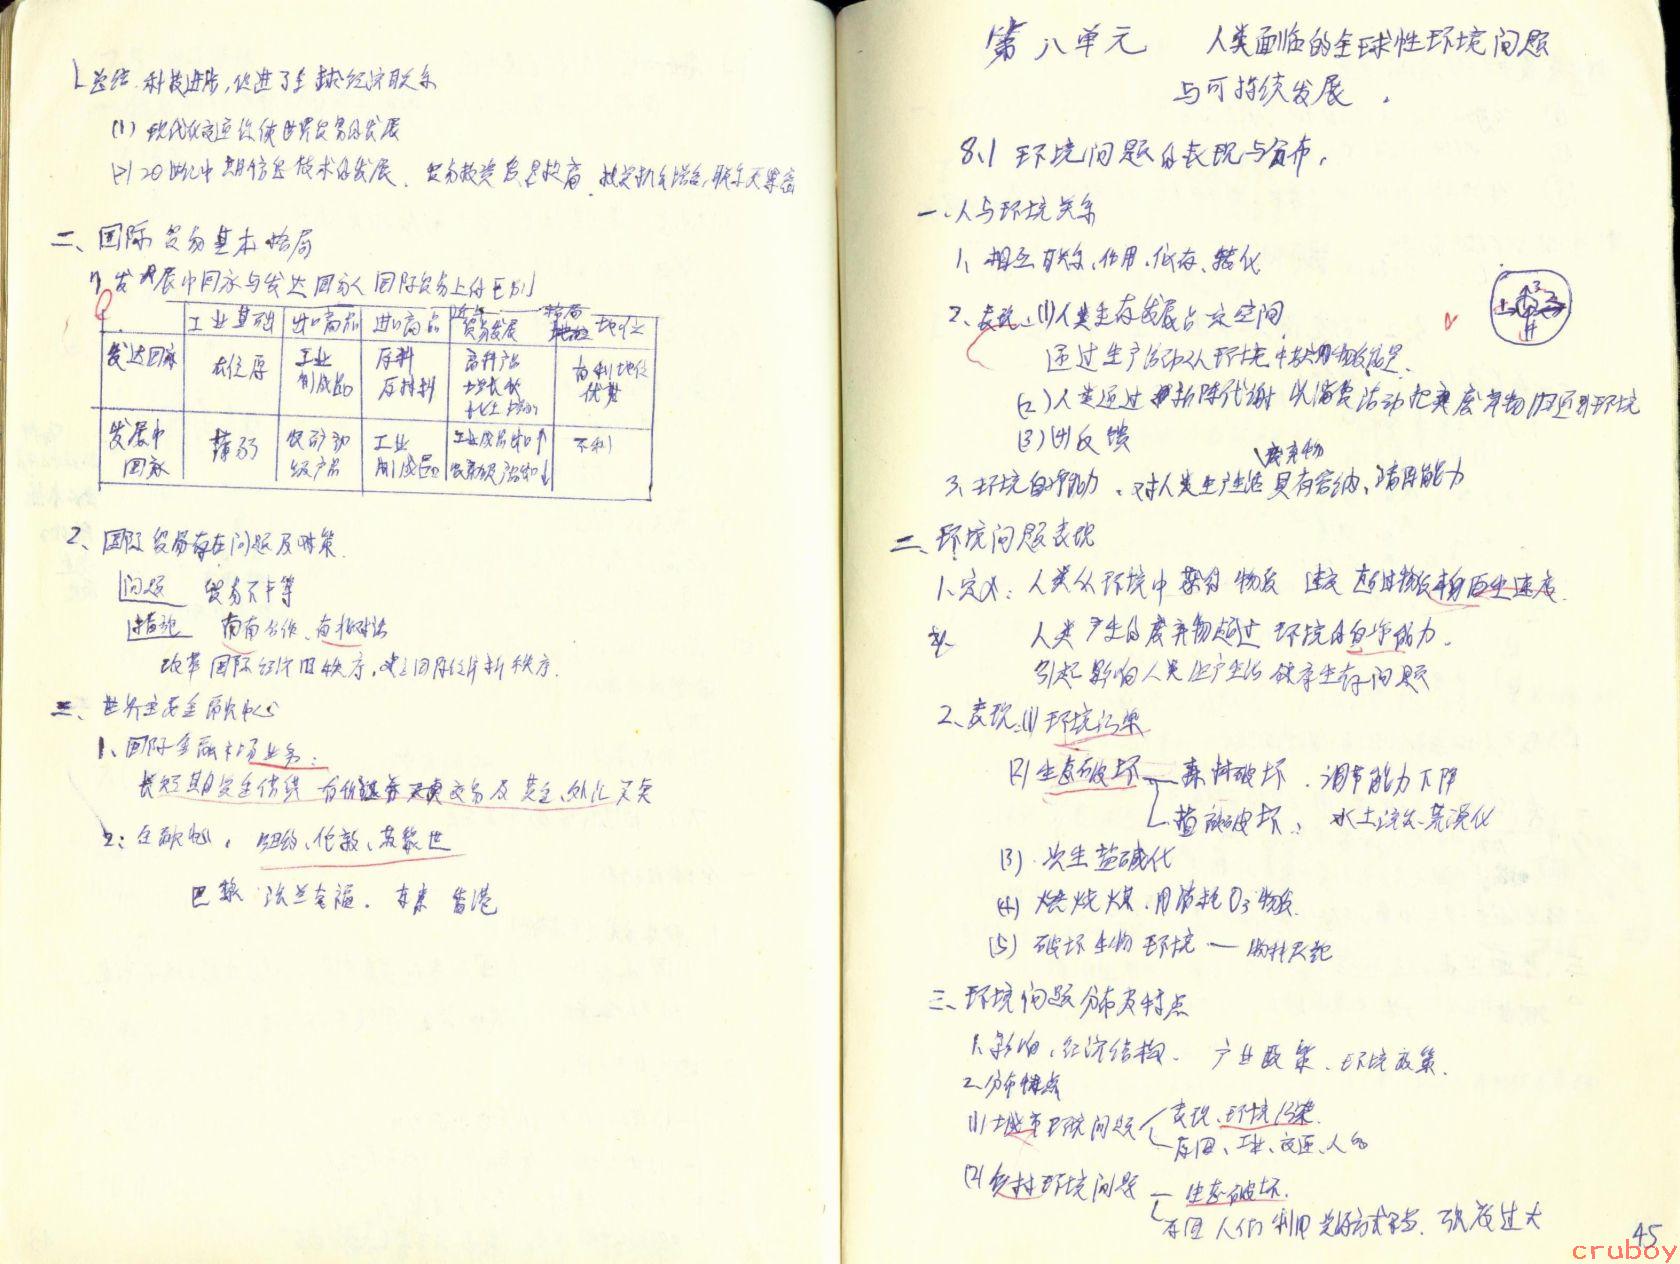 总结 科技进步,促进了全球经济联系
(1) 现代化交通运输使世界贸易的发展
(2) 20世纪中期信息技术的发展、贸易投资
二、国际贸易基本格局
1、发展中国家与发达国家人国际贸易上的区别
工业基础 出口商品 进口商品 贸易发展 格局 地位
发达国家 雄厚 工业制成品 原料 原材料 高科产品 增长快 有利地位 优势
发展中国家 薄弱 农矿初级产品 工业制成品 工业成品出口↑ 不利
2、国际贸易存在问题及对策
问题 贸易不平等
措施 南南合作、南北对话
改革国际经济旧秩序,建立国际经济新秩序.
三、世界主要金融中心
1、国际金融市场业务:
长短期资金借贷 有价证券买卖交易及黄金、外汇买卖
2: 金融中心, 纽约、伦敦、苏黎世
巴黎 法兰克福. 东京 香港
第八单元 人类面临的全球性环境问题
与可持续发展.
8.1 环境问题的表现与分布.
一、人与环境关系
1、相互联系、作用、依存、转化
2、表现、(1)人类生存发展占一定空间
通过生产活动从环境中获取物质能量.
(2)人类通过新陈代谢 以消费活动把废弃物归还到环境
(3)(4)反馈
废弃物
3、环境自净能力、对人类生产生活具有容纳、清除能力
二、环境问题表现
1、定义: 人类从环境中获得物质 速度 超过物质本身再生速度.
人类产生的废弃物超过环境的自净能力.
引起影响人类生产生活 健康生存问题
2、表现.(1)环境污染
(2)生态破坏 — 森林破坏、调节能力下降
植被破坏、 水土流失、荒漠化
(3)、次生盐碱化
(4) 燃烧煤、用消耗O3物质.
(5) 破坏生物环境 — 物种灭绝
三、环境问题分布及特点
1、影响、经济结构、 产业政策、环境政策.
2、分布特点
(1) 城市环境问题 表现、环境污染.
原因、工业、交通、人口
(2) 乡村环境问题 — 生态破坏.
原因 人们利用资源方式不当、强度过大
45
cruboy